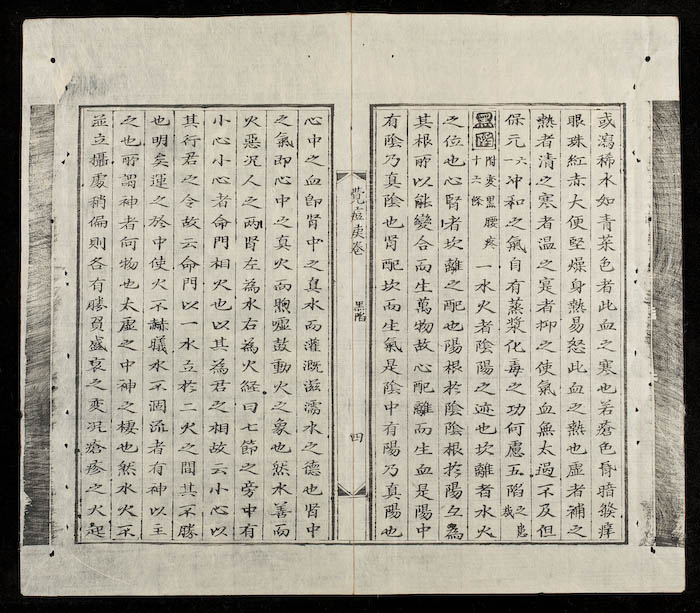 或瀉稀水如青菜色者此血之寒也若瘡色昏暗燄痒
眼珠紅赤大便堅燥身熱易怒此血之熱也虛者補之
熱者清之寒者溫之實者抑之使氣血無太過不及但
保元冲和之氣自有蒸漿化毒之功何慮五陷之患哉
黑陷 附变黑腰疼十六條 一水火者陰陽之迹也坎離者水火
之位也心腎者坎離之配也陽根於陰陰根於陽互為
其根所以能變合而生萬物故心配離而生血是陽中
有陰乃真陰也腎配坎而生氣是陰中有陽乃真陽也
痘疹卷 黑陷 四
心中之血即腎中之真水而灌溉滋濡水之德也腎中
之氣即心中之真火而煦噓鼓動火之象也然水善而
火惡況人之兩腎左為水右為火経曰七節之旁中有
小心小心者命門相火也以其為君之相故云小心以
其行君之令故云命門以一水立於二火之間其不勝
也明矣運之於中使火不赫曦水不涸流者有神以主
之也所謂神者何物也太虛之中神之棲也然水火不
並立攝處稍偏則各有勝負盛衰之变況瘡疹之火起